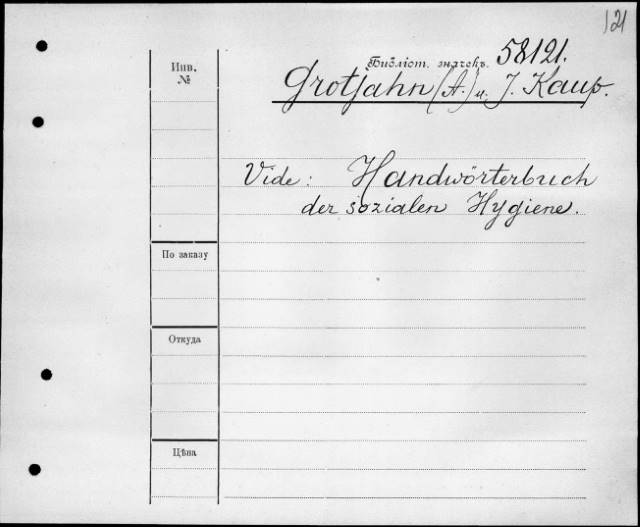 121
Инв.
№
Библіот. значекъ. 58121.
Grotjahn (A.) u. J. Kaup.
Vide: Handwörterbuch
der sozialen Hygiene.
По заказу
Откуда
Цѣна